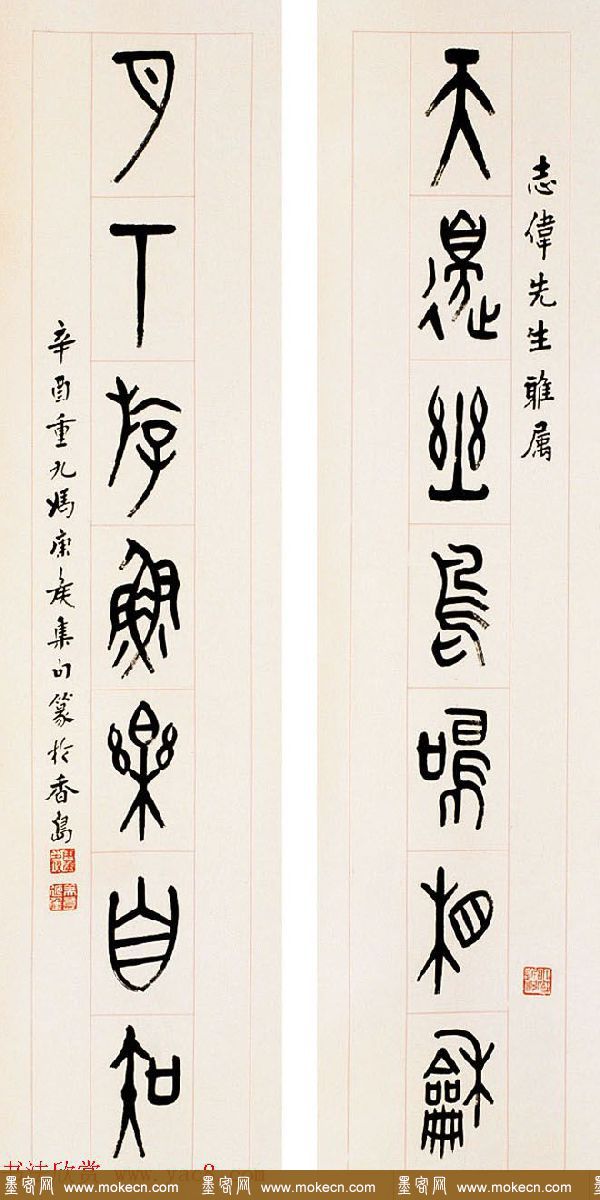 志偉先生雅属
天邊幽鳥鳴相龢
月下斿魚樂自知
辛酉重九馮康矦集句篆於香島
书法欣赏
墨客网 www.mokecn.com 墨客网 www.mokecn.com 墨客网 www.mokecn.com 墨客网